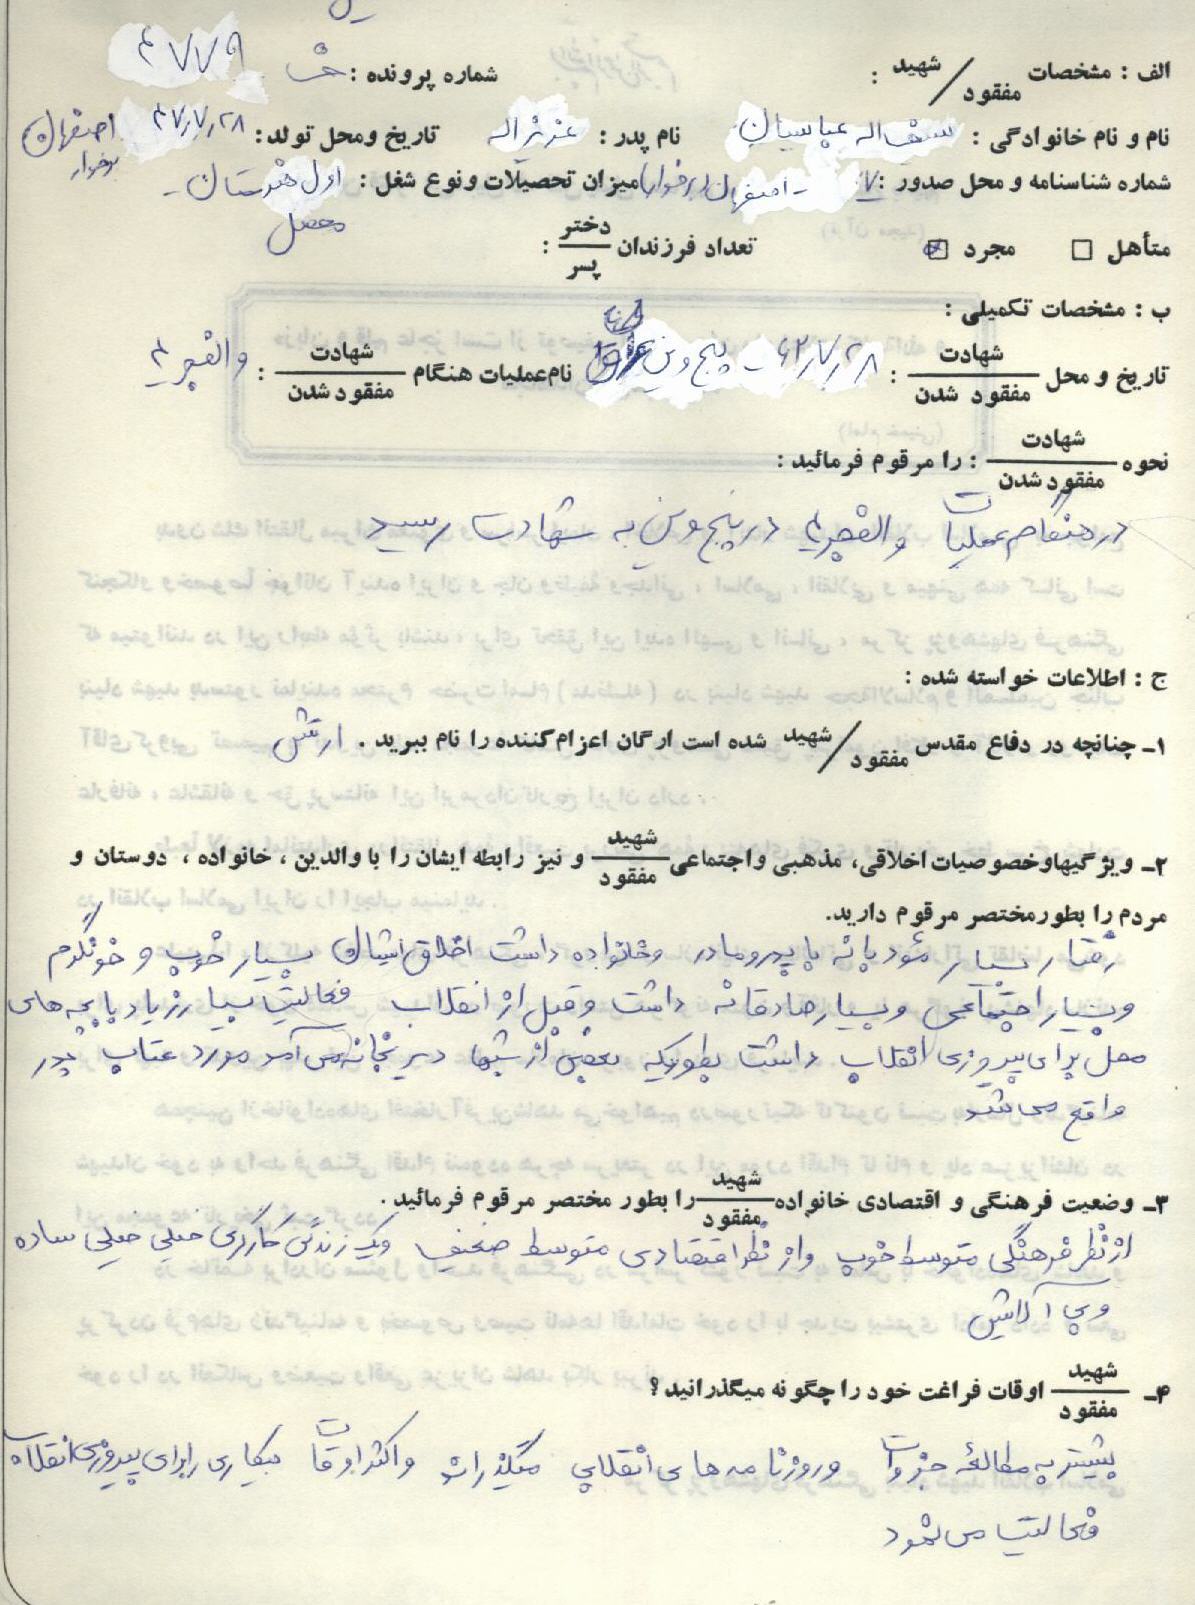 الف : مشخصات شهید / مفقود : شماره پرونده : ۴۷۷۹
نام و نام خانوادگی : سیف اله عباسیان نام پدر : عزیزاله تاریخ و محل تولد : ۴۷/۷/۲۸ اصفهان برخوار
شماره شناسنامه و محل صدور : ۷ - اصفهان (برخوار) میزان تحصیلات و نوع شغل : اول هنرستان -
محصل
متأهل □ مجرد ☒ تعداد فرزندان دختر / پسر :
ب : مشخصات تکمیلی :
تاریخ و محل شهادت / مفقود شدن : ۶۲/۷/۲۸ - پنج وین عراق نام عملیات هنگام شهادت / مفقود شدن : والفجر ۴
نحوه شهادت / مفقود شدن : را مرقوم فرمائید :
در هنگام عملیات والفجر ۴ در پنج وین به شهادت رسید
ج : اطلاعات خواسته شده :
۱ـ چنانچه در دفاع مقدس شهید / مفقود شده است ارگان اعزام کننده را نام ببرید . ارتش
۲ـ ویژگیها و خصوصیات اخلاقی، مذهبی و اجتماعی شهید / مفقود و نیز رابطه ایشان را با والدین ، خانواده ، دوستان و
مردم را بطور مختصر مرقوم دارید.
رفتار بسیار مؤدبانه با پدر و مادر و خانواده داشت اخلاق ایشان بسیار خوب و خونگرم
و بسیار اجتماعی و بسیار صادقانه داشت و قبل از انقلاب فعالیت بسیار زیاد با بچه های
محل برای پیروزی انقلاب داشت بطوریکه بعضی از شبها دیر بخانه می آمد مورد عتاب پدر
واقع می شد
۳ـ وضعیت فرهنگی و اقتصادی خانواده شهید / مفقود را بطور مختصر مرقوم فرمائید .
از نظر فرهنگی متوسط خوب و از نظر اقتصادی متوسط ضعیف و یک زندگی کارگری خیلی خیلی ساده
و بی آلایش
۴ـ شهید / مفقود اوقات فراغت خود را چگونه میگذرانید ؟
بیشتر به مطالعه جزوات و روزنامه های انقلابی میگذراند و اکثر اوقات بیکاری را برای پیروزی انقلاب
فعالیت می نمود